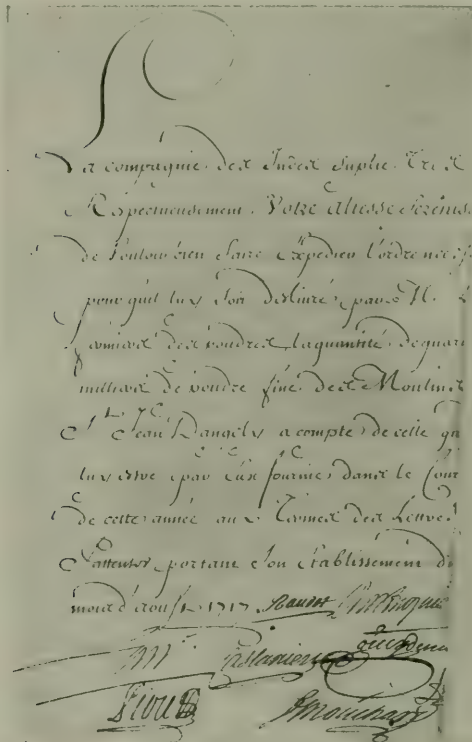 La compagnie des Indes suplie Tres
Respectueusement Votre Altesse Sereniss
de vouloir bien faire Expedier l'ordre necess
pour quil luy soit delivré par M. L
Commis des poudres la quantité de quar
milliers de poudre fine des Moulins
St Jean D'angely a compte de celle q
luy estre par Eux fournie dans le Cour
de cette année aux Termes des Lettres
Pattentes portant son Etablissement du
mois d'aoust 1717 Raudot
Castanier
Piou Mouchard